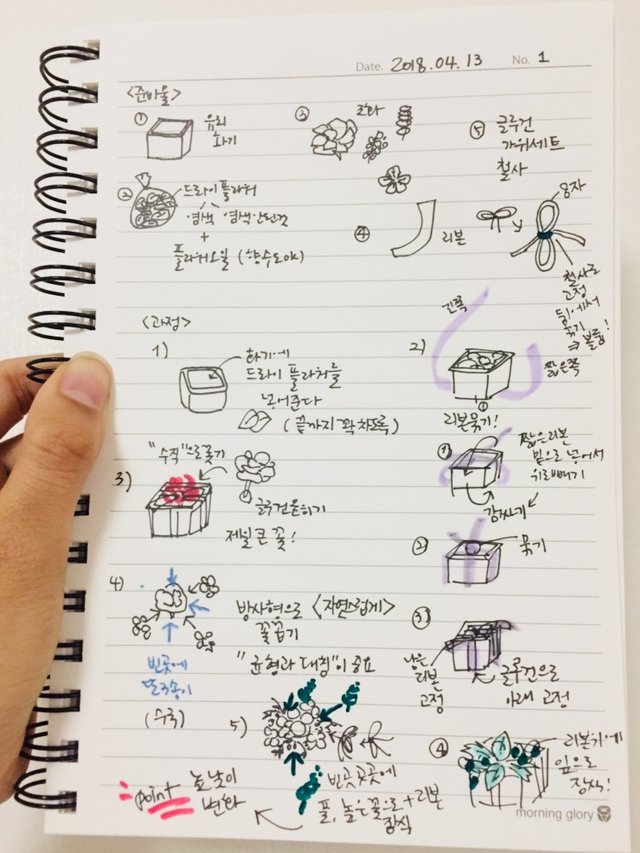 Date. 2018.04.13 No. 1
<준비물>
① 유리
화기
②
드라이플라워
염색 염색안된것
+
플라워오일 (향수도 OK)
③ 조화
④ 리본
⑤ 글루건
가위세트
철사
8자
철사로
고정
뒤에서
묶기!
⇒ 볼륨!
<과정>
1)
화기에
드라이 플라워를
넣어준다
(끝까지 꽉 차도록)
2)
긴쪽
짧은쪽
리본묶기!
① 짧은리본
밑으로 넣어서
위로빼기
감싸기
② 묶기
③
남은
리본
고정
글루건으로
아래 고정
④ 리본가에
잎으로
장식!
3)
"수직"으로꽂기
글루건묻히기
제일 큰 꽃!
4)
방사형으로 <자연스럽게>
꽃꽂기
"균형과 대칭"이 중요
빈곳에
또 3송이
(수국)
5)
빈곳곳곳에
풀, 높은꽃으로 + 리본
장식
point 높낮이
변화
morning glory